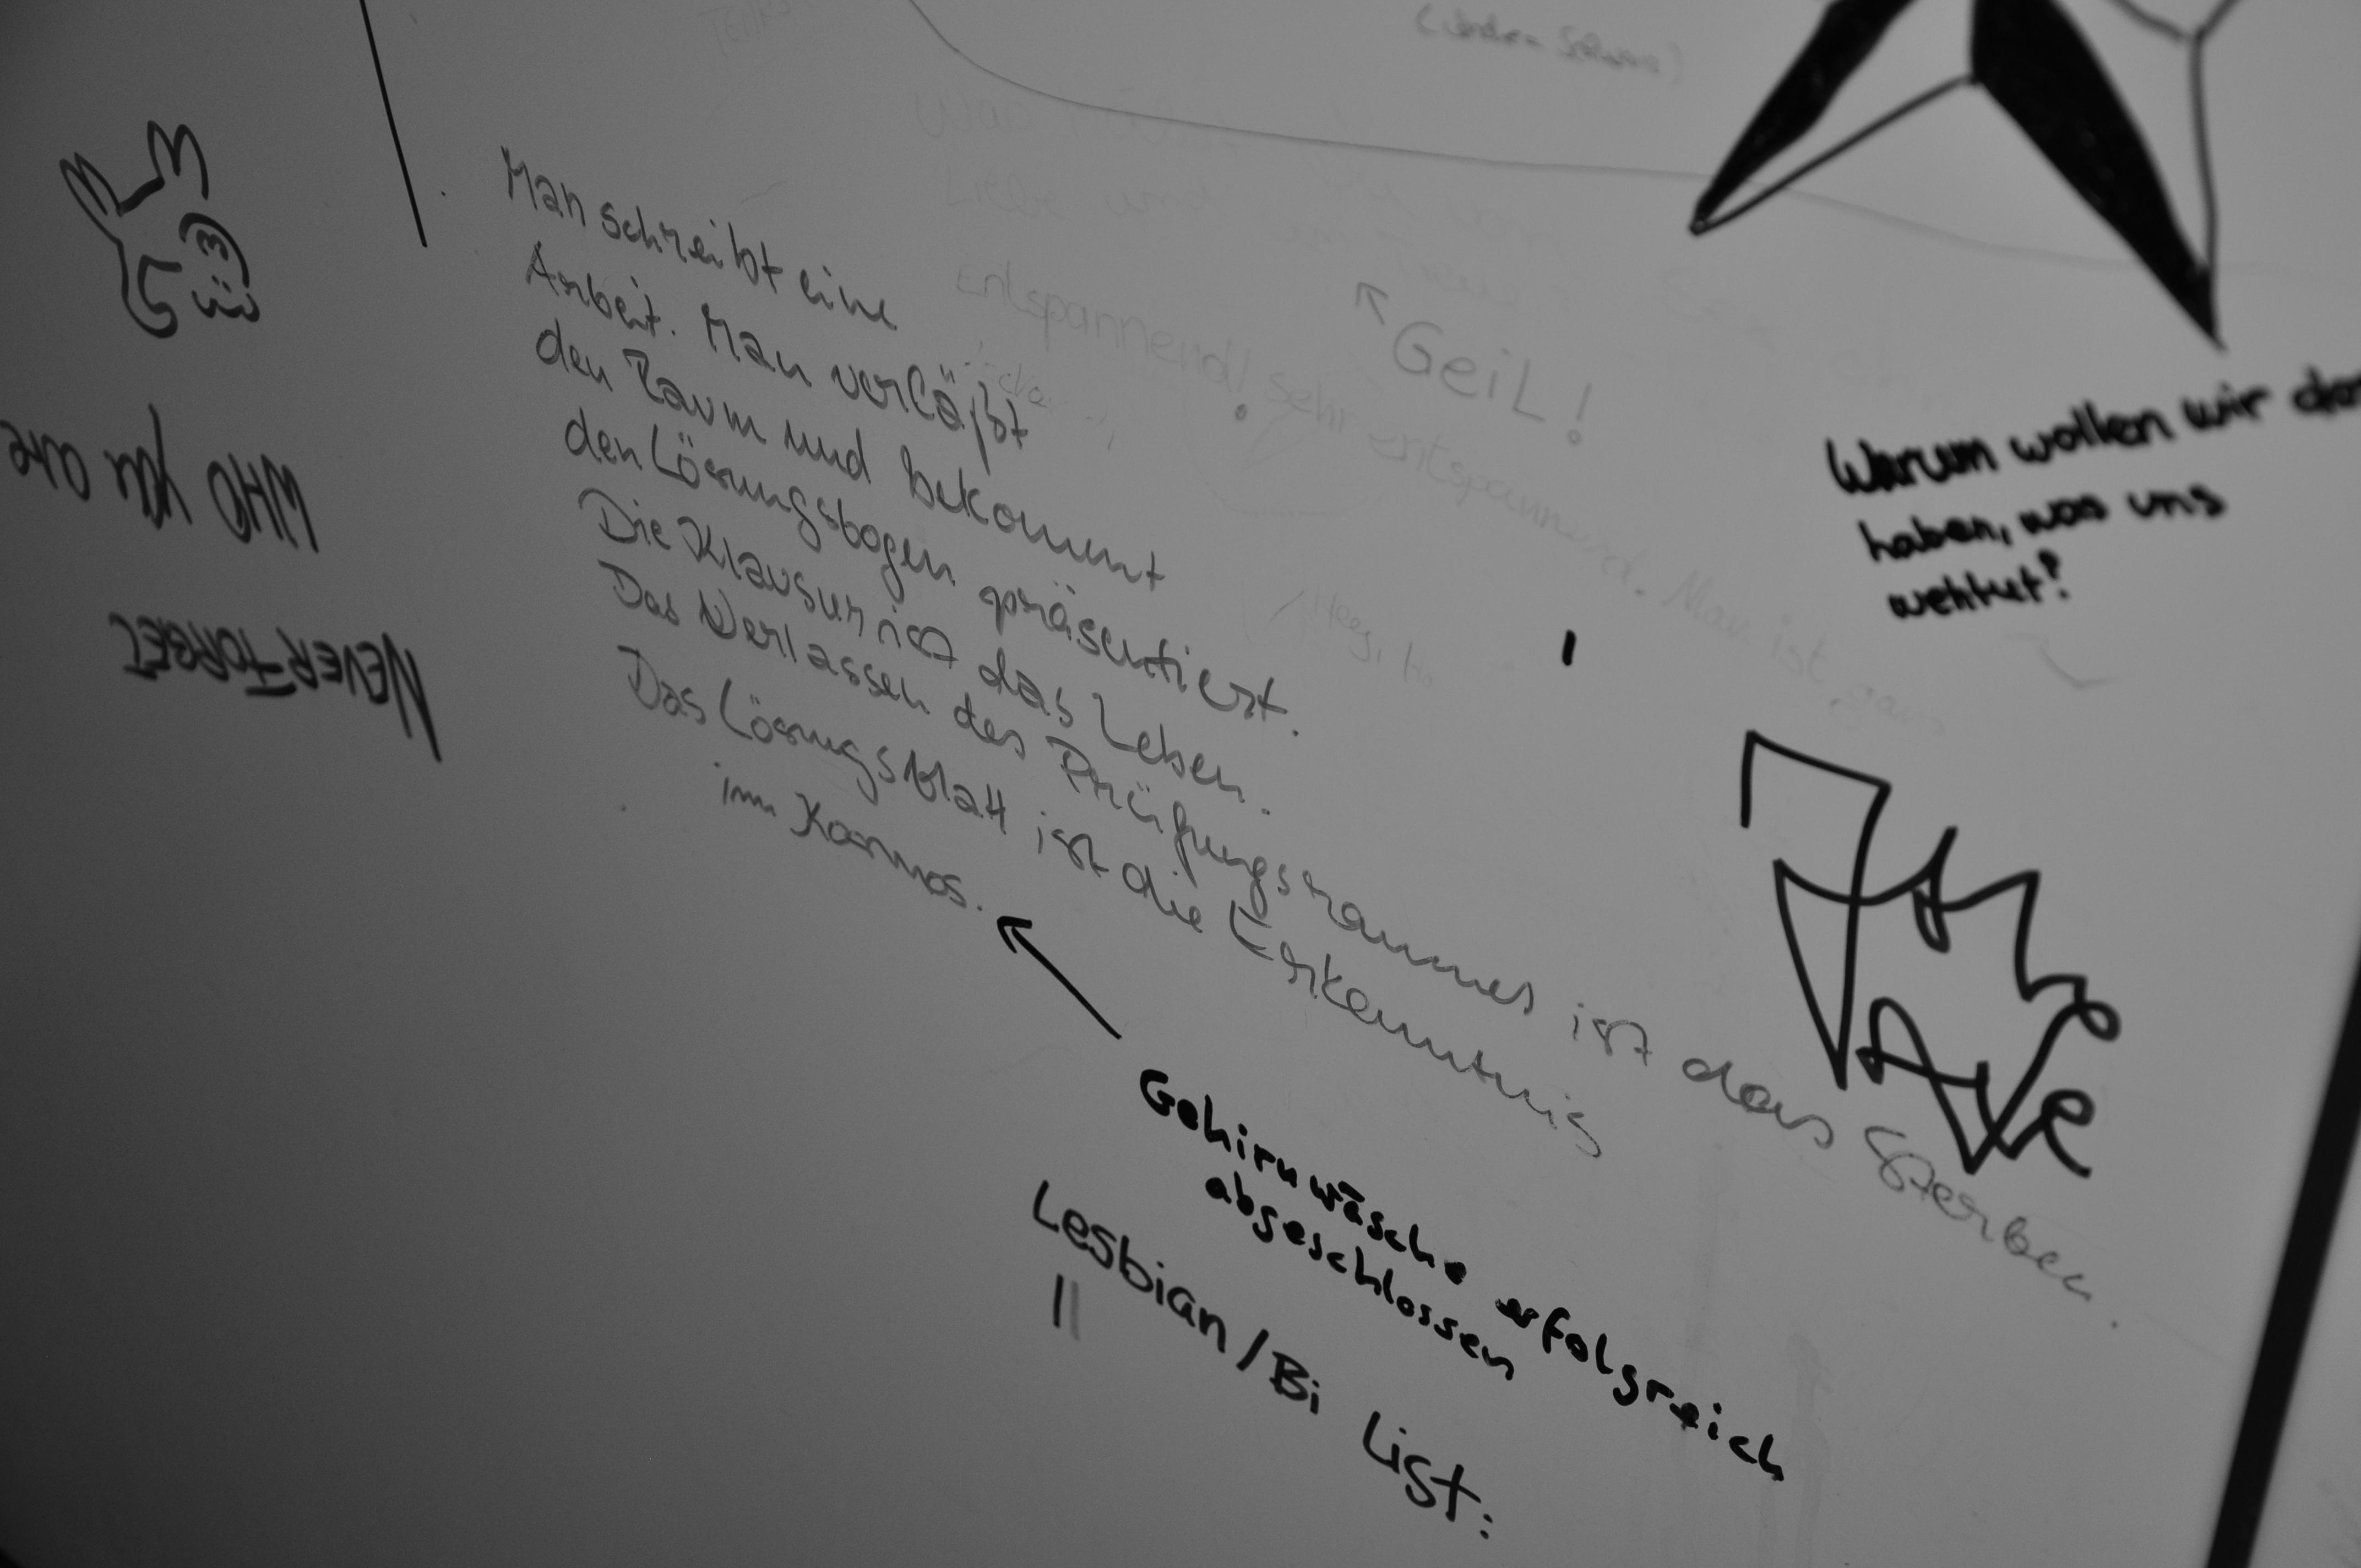 Man schreibt eine
Arbeit. Man verläßt
den Raum und bekommt
den Lösungsbogen präsentiert.
Die Klausur ist das Leben.
Das Verlassen des Prüfungsraumes ist das Sterben.
Das Lösungsblatt ist die Erkenntnis
im Kosmos.
Gehirnwäsche erfolgreich
abgeschlossen
Lesbian/Bi List:
NEVER FORGET
WHO you are
Entspannend! Sehr entspannend. Man ist ganz
GeiL!
Warum wollen wir das
haben, was uns
wehtut?